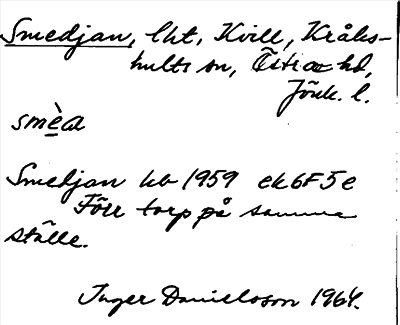 Smedjan, lht, Kvill, Kråks-
hults sn, Östra hd,
Jönk. l.
smèa
Smedjan kb 1959 ek6F5e
Förr torp på samma
ställe.
Inger Danielsson 1964.